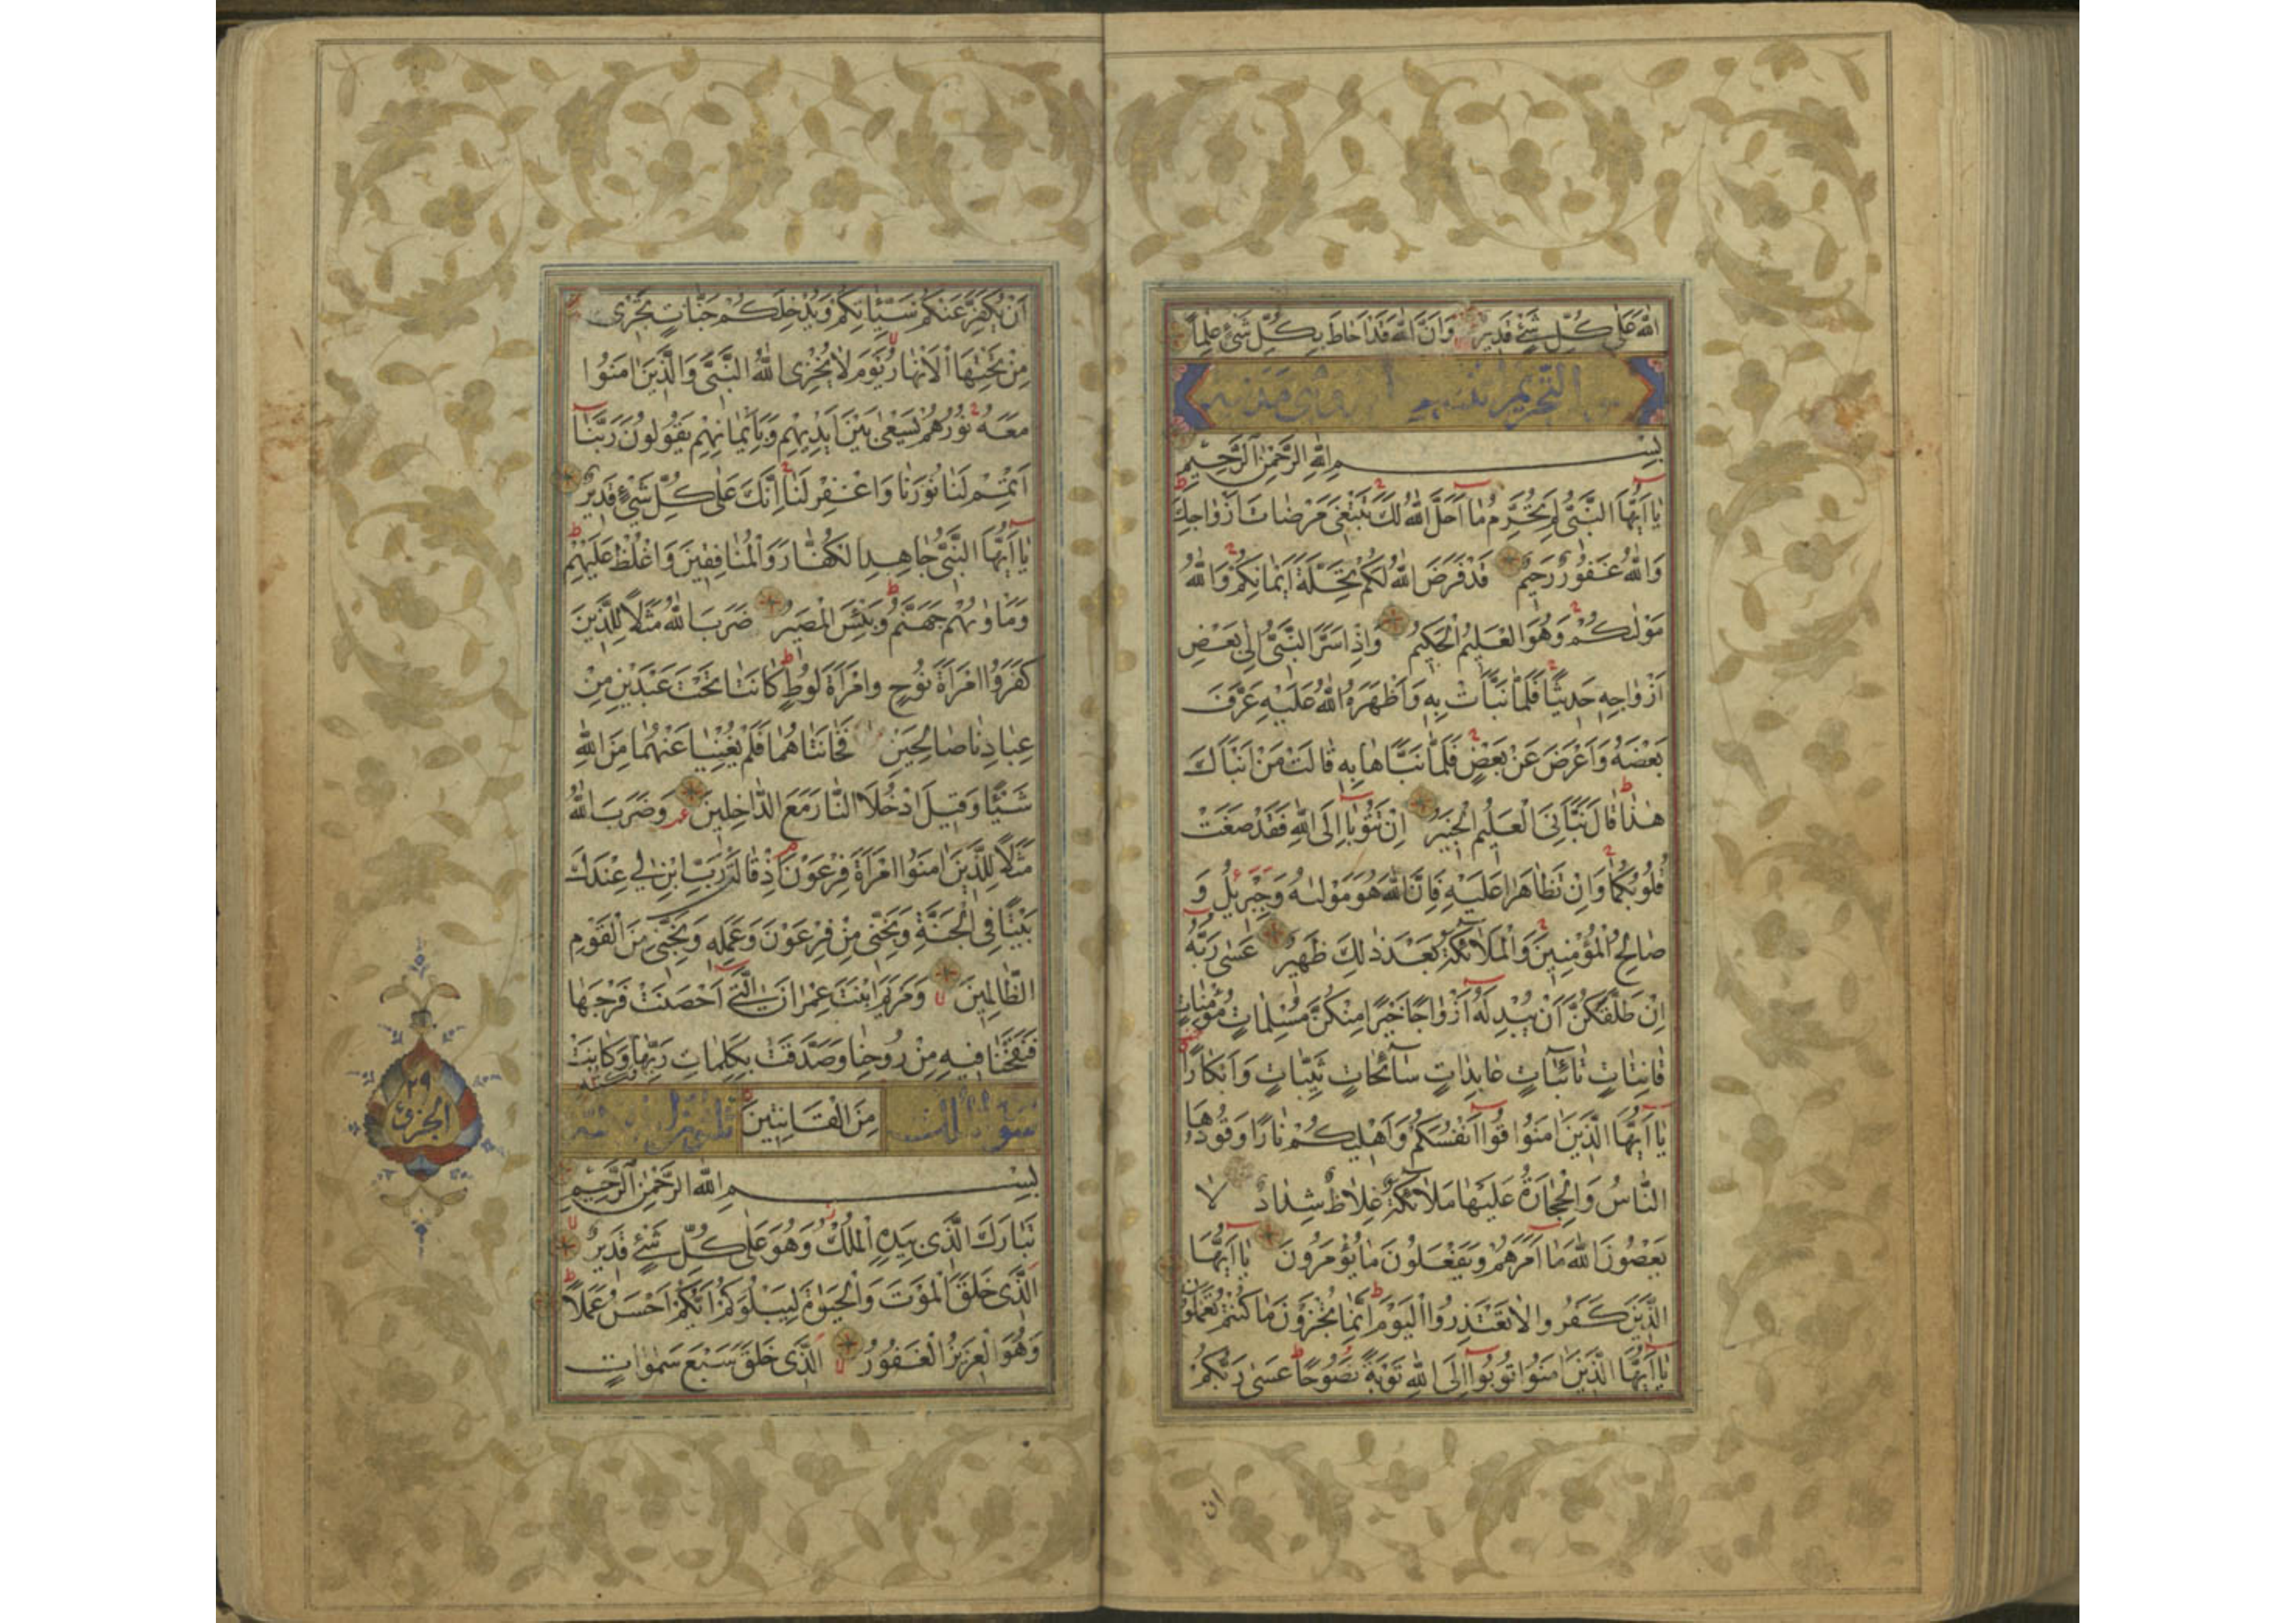 اللّٰهَ عَلٰى كُلِّ شَيْءٍ قَدِيرٌ وَاَنَّ اللّٰهَ قَدْ اَحَاطَ بِكُلِّ شَيْءٍ عِلْمًا
التحريم
بِسْمِ اللّٰهِ الرَّحْمٰنِ الرَّحِيمِ
يَا اَيُّهَا النَّبِيُّ لِمَ تُحَرِّمُ مَا اَحَلَّ اللّٰهُ لَكَ تَبْتَغِي مَرْضَاتَ اَزْوَاجِكَ
وَاللّٰهُ غَفُورٌ رَحِيمٌ قَدْ فَرَضَ اللّٰهُ لَكُمْ تَحِلَّةَ اَيْمَانِكُمْ وَاللّٰهُ
مَوْلٰيكُمْ وَهُوَ الْعَلِيمُ الْحَكِيمُ وَاِذْ اَسَرَّ النَّبِيُّ اِلٰى بَعْضِ
اَزْوَاجِهِ حَدِيثًا فَلَمَّا نَبَّأَتْ بِهِ وَاَظْهَرَهُ اللّٰهُ عَلَيْهِ عَرَّفَ
بَعْضَهُ وَاَعْرَضَ عَنْ بَعْضٍ فَلَمَّا نَبَّاَهَا بِهِ قَالَتْ مَنْ اَنْبَاَكَ
هٰذَا قَالَ نَبَّاَنِيَ الْعَلِيمُ الْخَبِيرُ اِنْ تَتُوبَا اِلَى اللّٰهِ فَقَدْ صَغَتْ
قُلُوبُكُمَا وَاِنْ تَظَاهَرَا عَلَيْهِ فَاِنَّ اللّٰهَ هُوَ مَوْلٰيهُ وَجِبْرِيلُ وَ
صَالِحُ الْمُؤْمِنِينَ وَالْمَلَائِكَةُ بَعْدَ ذٰلِكَ ظَهِيرٌ عَسٰى رَبُّهُ
اِنْ طَلَّقَكُنَّ اَنْ يُبْدِلَهُ اَزْوَاجًا خَيْرًا مِنْكُنَّ مُسْلِمَاتٍ مُؤْمِنَاتٍ
قَانِتَاتٍ تَائِبَاتٍ عَابِدَاتٍ سَائِحَاتٍ ثَيِّبَاتٍ وَاَبْكَارًا
يَا اَيُّهَا الَّذِينَ اٰمَنُوا قُوا اَنْفُسَكُمْ وَاَهْلِيكُمْ نَارًا وَقُودُهَا
النَّاسُ وَالْحِجَارَةُ عَلَيْهَا مَلَائِكَةٌ غِلَاظٌ شِدَادٌ لَا
يَعْصُونَ اللّٰهَ مَا اَمَرَهُمْ وَيَفْعَلُونَ مَا يُؤْمَرُونَ يَا اَيُّهَا
الَّذِينَ كَفَرُوا لَا تَعْتَذِرُوا الْيَوْمَ اِنَّمَا تُجْزَوْنَ مَا كُنْتُمْ تَعْمَلُونَ
يَا اَيُّهَا الَّذِينَ اٰمَنُوا تُوبُوا اِلَى اللّٰهِ تَوْبَةً نَصُوحًا عَسٰى رَبُّكُمْ
ان
اَنْ يُكَفِّرَ عَنْكُمْ سَيِّئَاتِكُمْ وَيُدْخِلَكُمْ جَنَّاتٍ تَجْرِي
مِنْ تَحْتِهَا الْاَنْهَارُ يَوْمَ لَا يُخْزِي اللّٰهُ النَّبِيَّ وَالَّذِينَ اٰمَنُوا
مَعَهُ نُورُهُمْ يَسْعٰى بَيْنَ اَيْدِيهِمْ وَبِاَيْمَانِهِمْ يَقُولُونَ رَبَّنَا
اَتْمِمْ لَنَا نُورَنَا وَاغْفِرْ لَنَا اِنَّكَ عَلٰى كُلِّ شَيْءٍ قَدِيرٌ
يَا اَيُّهَا النَّبِيُّ جَاهِدِ الْكُفَّارَ وَالْمُنَافِقِينَ وَاغْلُظْ عَلَيْهِمْ
وَمَاْوٰيهُمْ جَهَنَّمُ وَبِئْسَ الْمَصِيرُ ضَرَبَ اللّٰهُ مَثَلًا لِلَّذِينَ
كَفَرُوا امْرَاَةَ نُوحٍ وَامْرَاَةَ لُوطٍ كَانَتَا تَحْتَ عَبْدَيْنِ مِنْ
عِبَادِنَا صَالِحَيْنِ فَخَانَتَاهُمَا فَلَمْ يُغْنِيَا عَنْهُمَا مِنَ اللّٰهِ
شَيْئًا وَقِيلَ ادْخُلَا النَّارَ مَعَ الدَّاخِلِينَ وَضَرَبَ اللّٰهُ
مَثَلًا لِلَّذِينَ اٰمَنُوا امْرَاَةَ فِرْعَوْنَ اِذْ قَالَتْ رَبِّ ابْنِ لِي عِنْدَكَ
بَيْتًا فِي الْجَنَّةِ وَنَجِّنِي مِنْ فِرْعَوْنَ وَعَمَلِهِ وَنَجِّنِي مِنَ الْقَوْمِ
الظَّالِمِينَ وَمَرْيَمَ ابْنَتَ عِمْرَانَ الَّتِي اَحْصَنَتْ فَرْجَهَا
فَنَفَخْنَا فِيهِ مِنْ رُوحِنَا وَصَدَّقَتْ بِكَلِمَاتِ رَبِّهَا وَكُتُبِهِ وَكَانَتْ
مِنَ الْقَانِتِينَ
بِسْمِ اللّٰهِ الرَّحْمٰنِ الرَّحِيمِ
تَبَارَكَ الَّذِي بِيَدِهِ الْمُلْكُ وَهُوَ عَلٰى كُلِّ شَيْءٍ قَدِيرٌ
الَّذِي خَلَقَ الْمَوْتَ وَالْحَيٰوةَ لِيَبْلُوَكُمْ اَيُّكُمْ اَحْسَنُ عَمَلًا
وَهُوَ الْعَزِيزُ الْغَفُورُ الَّذِي خَلَقَ سَبْعَ سَمٰوَاتٍ
٢٩
الجزئ